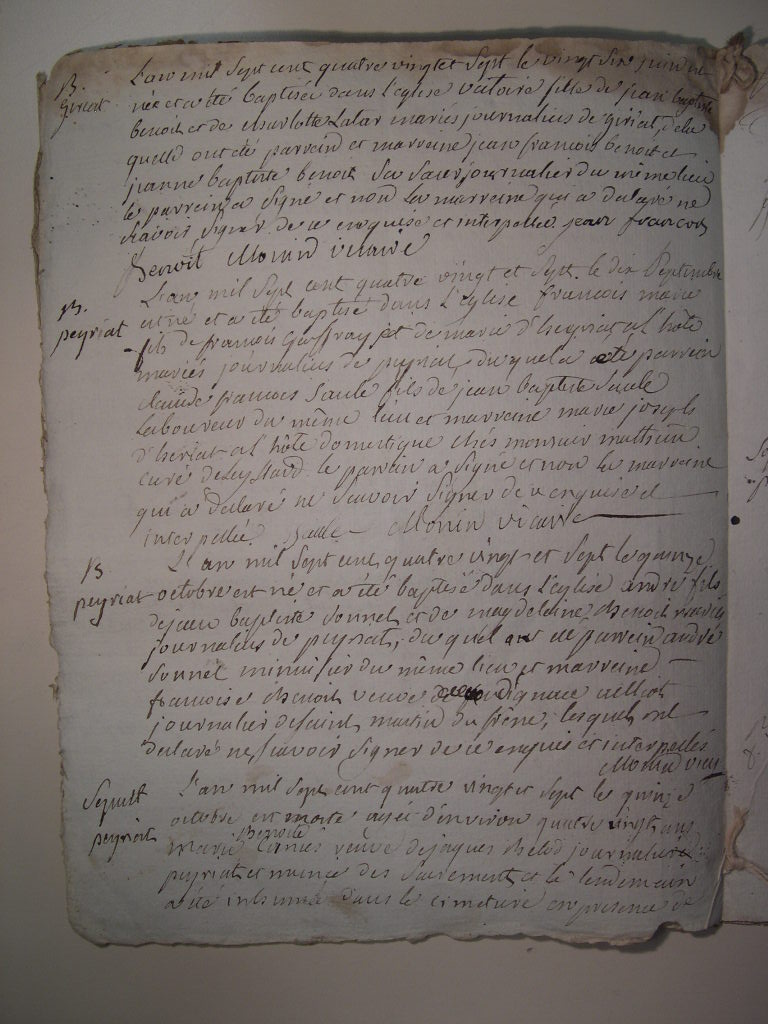 B.
giriat
L'an mil sept cent quatre vingt et sept le vingt six juin est
née et a été baptisée dans l'eglise victoire fille de jean baptiste
benoit et de charlotte Latar mariés journaliers de giriat, de la
quelle ont été parrein et marreine jean francois benoit et
jeanne baptiste benoit sa sœur journalier du même lieu
le parrein a signé et non la marreine qui a declaré ne
scavoir signer de ce enquise et interpellée. jean francois
Benoit Monin vicaire
B.
peyriat
L'an mil sept cent quatre vingt et sept. le dix Septembre
est né et a été baptisé dans L'eglise francois marie
fils de francois Goffray et de marie d'heyriat a l'hôte
mariés journaliers de peyriat, duquel a été parrein
claude francois Saule fils de jean baptiste Saule
Laboureur du même lieu et marreine marie joseph
d'heriat a l'hôte domestique chés monsieur mathieu
curé de Leyssard le parrein a signé et non la marreine
qui a declaré ne Savoir signer de ce enquise et
interpellée. Saule Monin vicaire
B
peyriat
L'an mil sept cent quatre vingt et sept le quinze
octobre est né et a été baptisé dans L'eglise andré fils
de jean baptiste Sonnet et de magdelaine chenoit mariés
journaliers de peyriat, du quel ont été parrein andré
Sonnet du même lieu et marreine
francoise chenoit veuve d'ignace
journalier de saint martin du frêne, lesquels ont
declaré ne scavoir signer de ce enquis et interpellés
Monin vicaire
Sepult
peyriat
L'an mil sept cent quatre vingt et sept le quinze
octobre est morte agée d'environ quatre vingt ans
Benoite
marie veuve de jaques journalier
peyriat et munie des Sacrements et le lendemain
a été inhumée dans le cimetiere en presence de